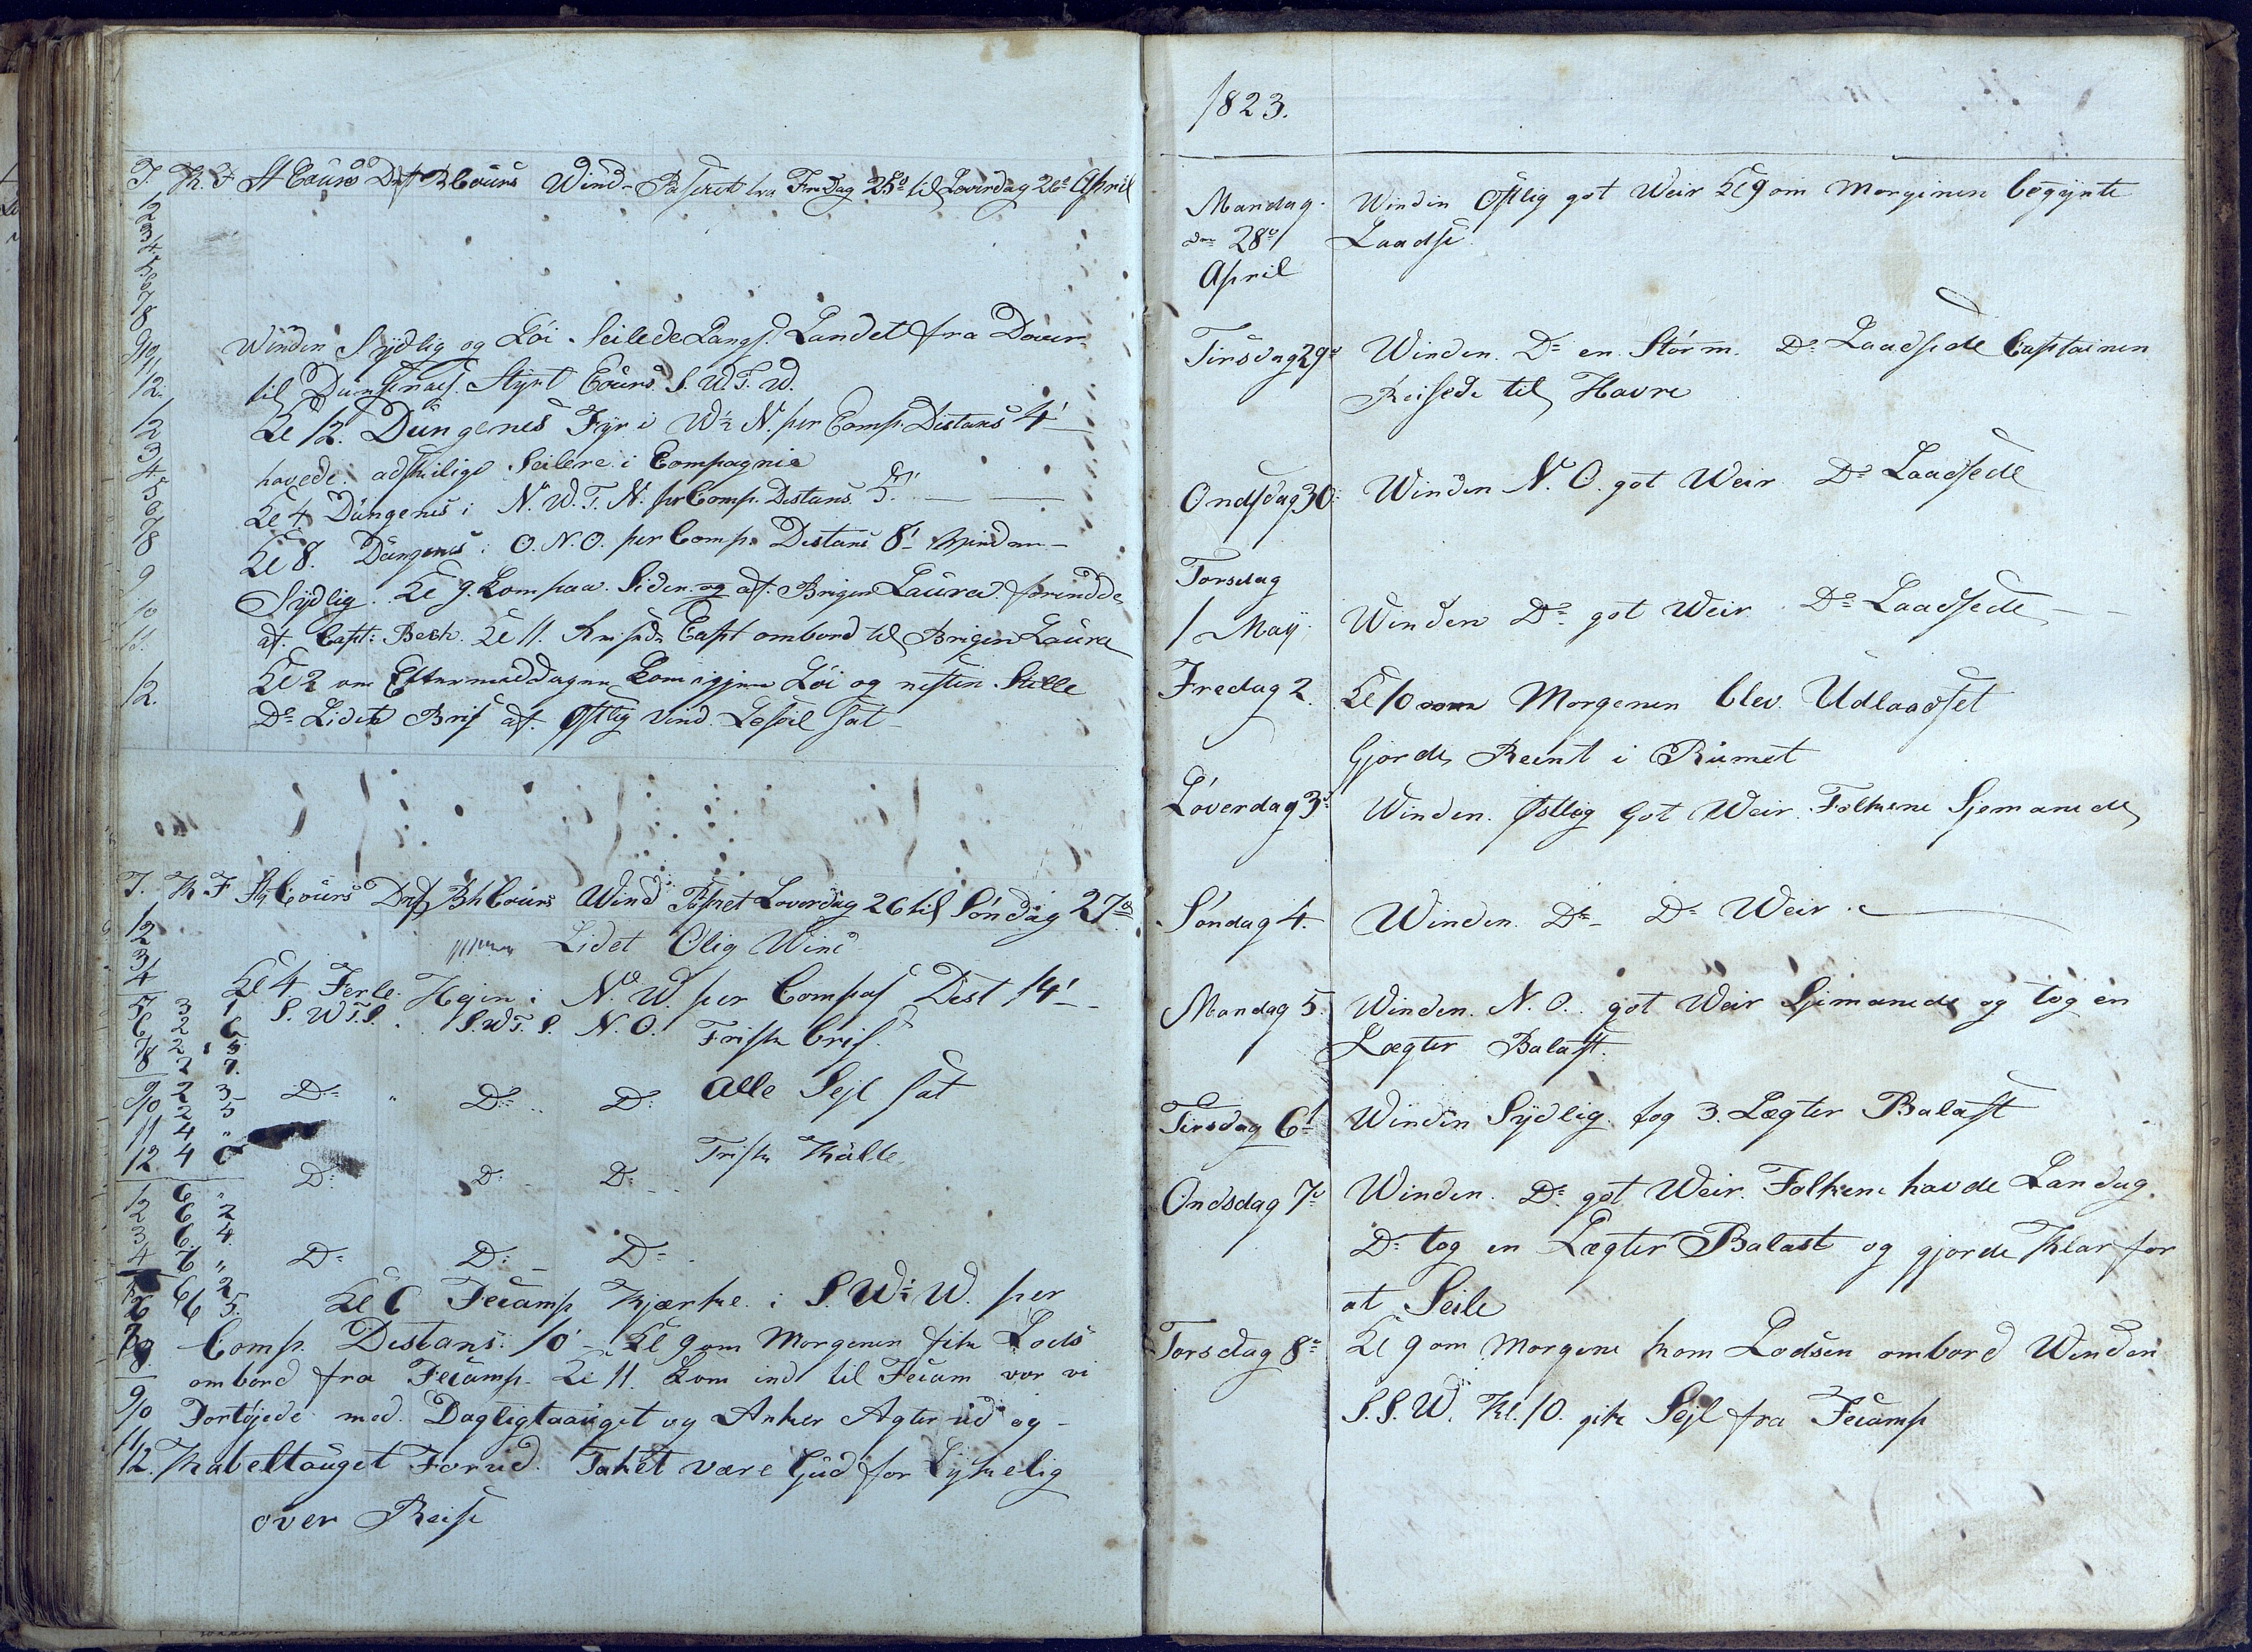 T. K. F St Cours Drft Bh Cours Wind - Passeret fra Fredag 25de til Loverdag 26de April
1
2
3
4
5
6
7
8
9
10
11
12.
Winden Sÿdlig og Löi. Seilede Langs Landet fra Dover
til Dungenaes. Stÿrt Cours. S.W.T.W.
Kl 12. Dungenes Fÿr i W½N. per Comp. Distans 4'
havede adskilige Seilere i Compagnie
Kl 4 Dungenes i N.W.T.N. per Comp. Distans 5'.
Kl 8. Dungenes i O.N.O. per Comp. Distans 8' Winden
Sÿdlig. Kl 9. kom paa Siden af Brigen Laura
af Capt: Bech. Kl 11. Reisede Capt ombord til Brigen Laura
Kl 2 om Eftermiddagen kom igjen Löi og nesten Stille
Do Lidet Bris af Ostlig Vind. Leseil sat
1
2
3
4
5
6
7
8
9
10
11.
12.
T. K. F St Cours Drft Bh Cours Wind Passeret Loverdag 26 til Söndag 27de
1
2 Lidet Olig Wind
3
4 Kl 4 Ferle Hejen i N.W. per Compas Dist 14'
5 3 1 S.W.T.S. S.W.T.S. N.O. Friske Bris.
6 2 6
7 2 5
8 2 7.
9 2 3 Do Do Do Alle Sejl sat
10 2 5
11 4 "
12 4 6 Do Do Do Friske Kulde
1 6 "
2 6 2
3 6 4
4 6 " Do Do Do
5 6 2
6 6 5. Kl 6 Fecamp Kjærke i S.W½W. per
7
8 Comp. Distans: 10' - Kl 9 om Morgenen fik Lods
ombord fra Fecamp. Kl 11. Kom ind til Fecam vor vi
9
10 Fortöjede med Dagligtaauget og Anker Agter ud og -
11
12. Kabeltauget Forud. Taket være Gud for Lÿkelig
over Reise
1823.
Mandag Winden Ostlig got Weir Kl 9 om Morgenen begÿnte
den 28de Laadse.
April
Tirsdag 29de Winden Do en Storm. Do Laadsede Captainen
Reisede til Havre
Ondsdag 30. Winden N.O. got Weir Do Laadsede
Torsdag
1 Maÿ Winden Do got Weir. Do Laadsede
Fredag 2. Kl 10 om Morgenen blev Udlaadset
Gjorde Reent i Rumet
Löverdag 3de Winden. Ostlig Got Weir. Folkene Sjemanede
Söndag 4. Winden Do Do Weir
Mandag 5. Winden. N.O. got Weir Sjimanede og tog en
Lægter Balast.
Tirsdag 6te Winden Sÿdlig. tog 3. Lægter Balast
Ondsdag 7de Winden. Do got Weir. Folkene havde Landag
Do tog en Lægter Balast og gjorde Klar for
at Seile
Torsdag 8de Kl 9 om Morgene kom Lodsen ombord Winden
S.S.W. Kl. 10. gik Sejl fra Fecamp